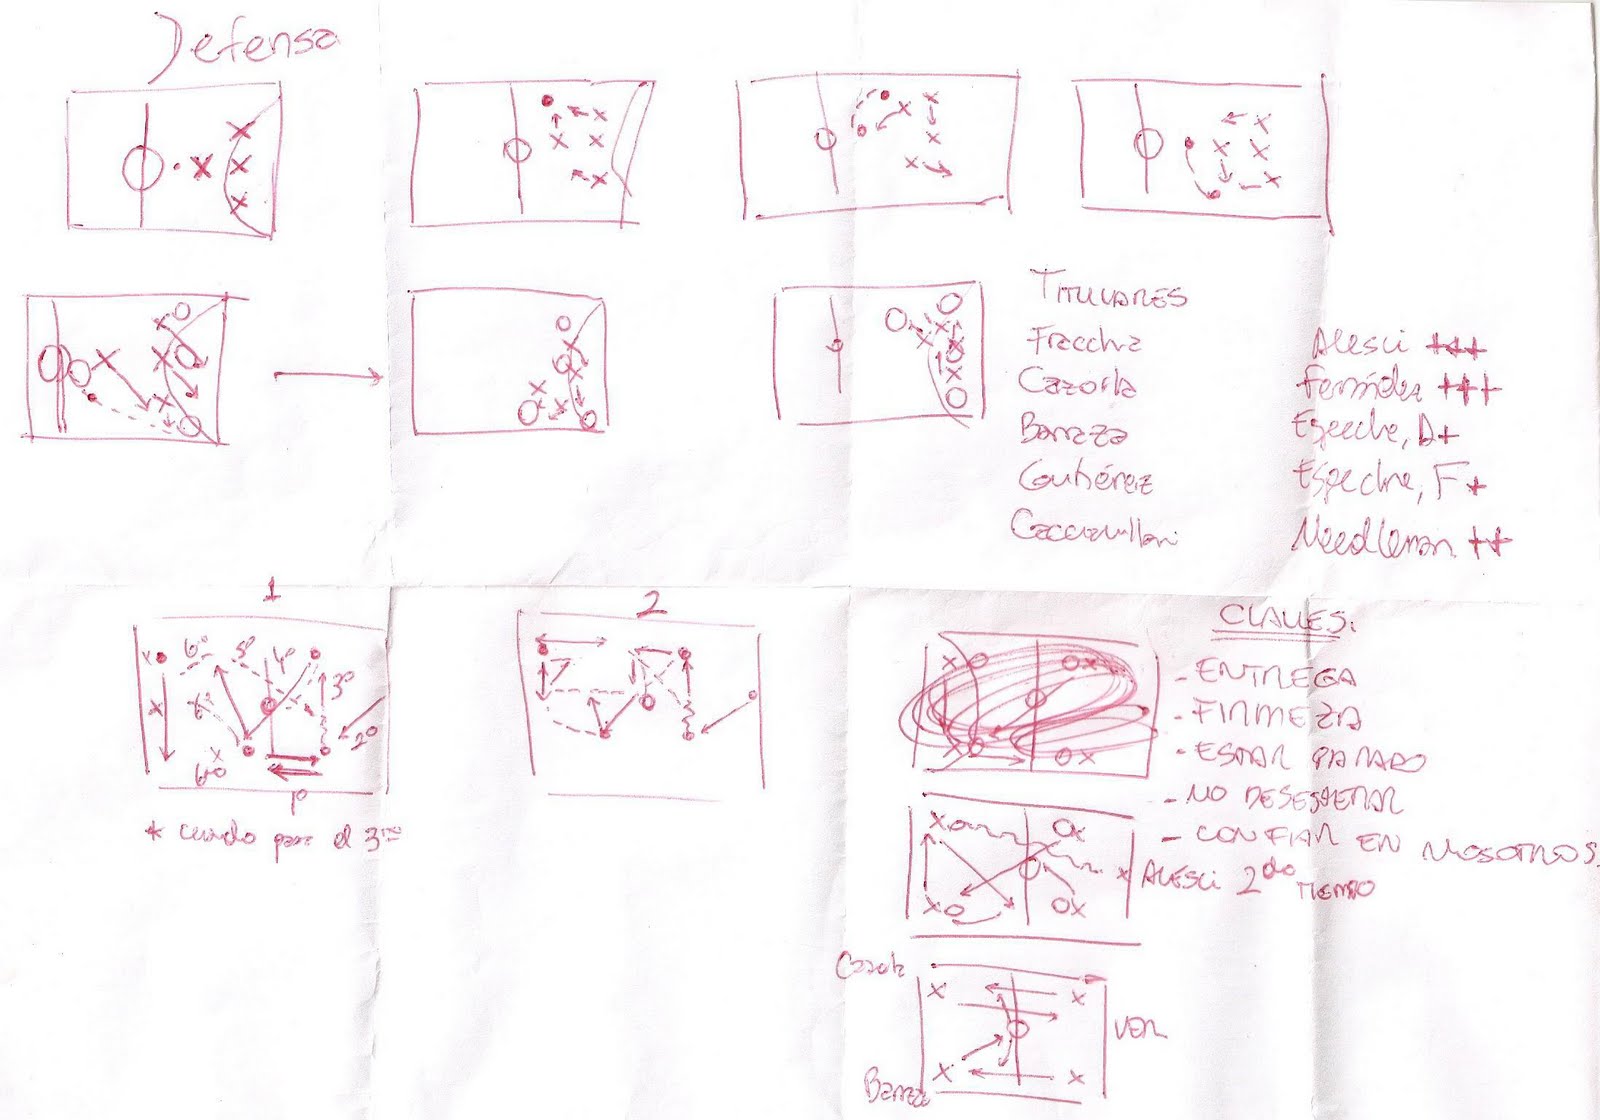 Defensa
TITULARES
Fracchia
Cazorla
Barraza
Gutiérrez
Alesci +++
Fernández +++
Espeche, D+
Espeche, F+
Needleman ++
1
2
6º 5º 4º
3º
6º
2º
6º
1º
* cuando pase el 3ro
CLAVES:
- ENTREGA
- FIRMEZA
- ESTAR PARADO
- NO DESESPERAR
- CONFIAR EN NOSOTROS.
* ALESCI 2do TIEMPO
Cazorla
VER
Barraza